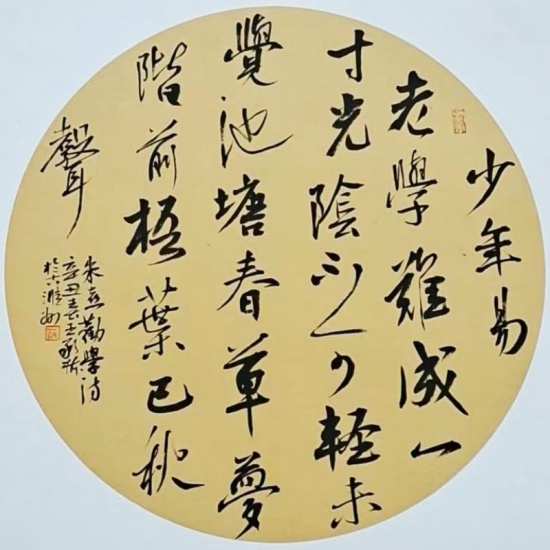 少年易
老學難成一
寸光陰不可輕未
覺池塘春草夢
階前梧葉已秋
聲
朱熹勸學詩
辛丑春王
於